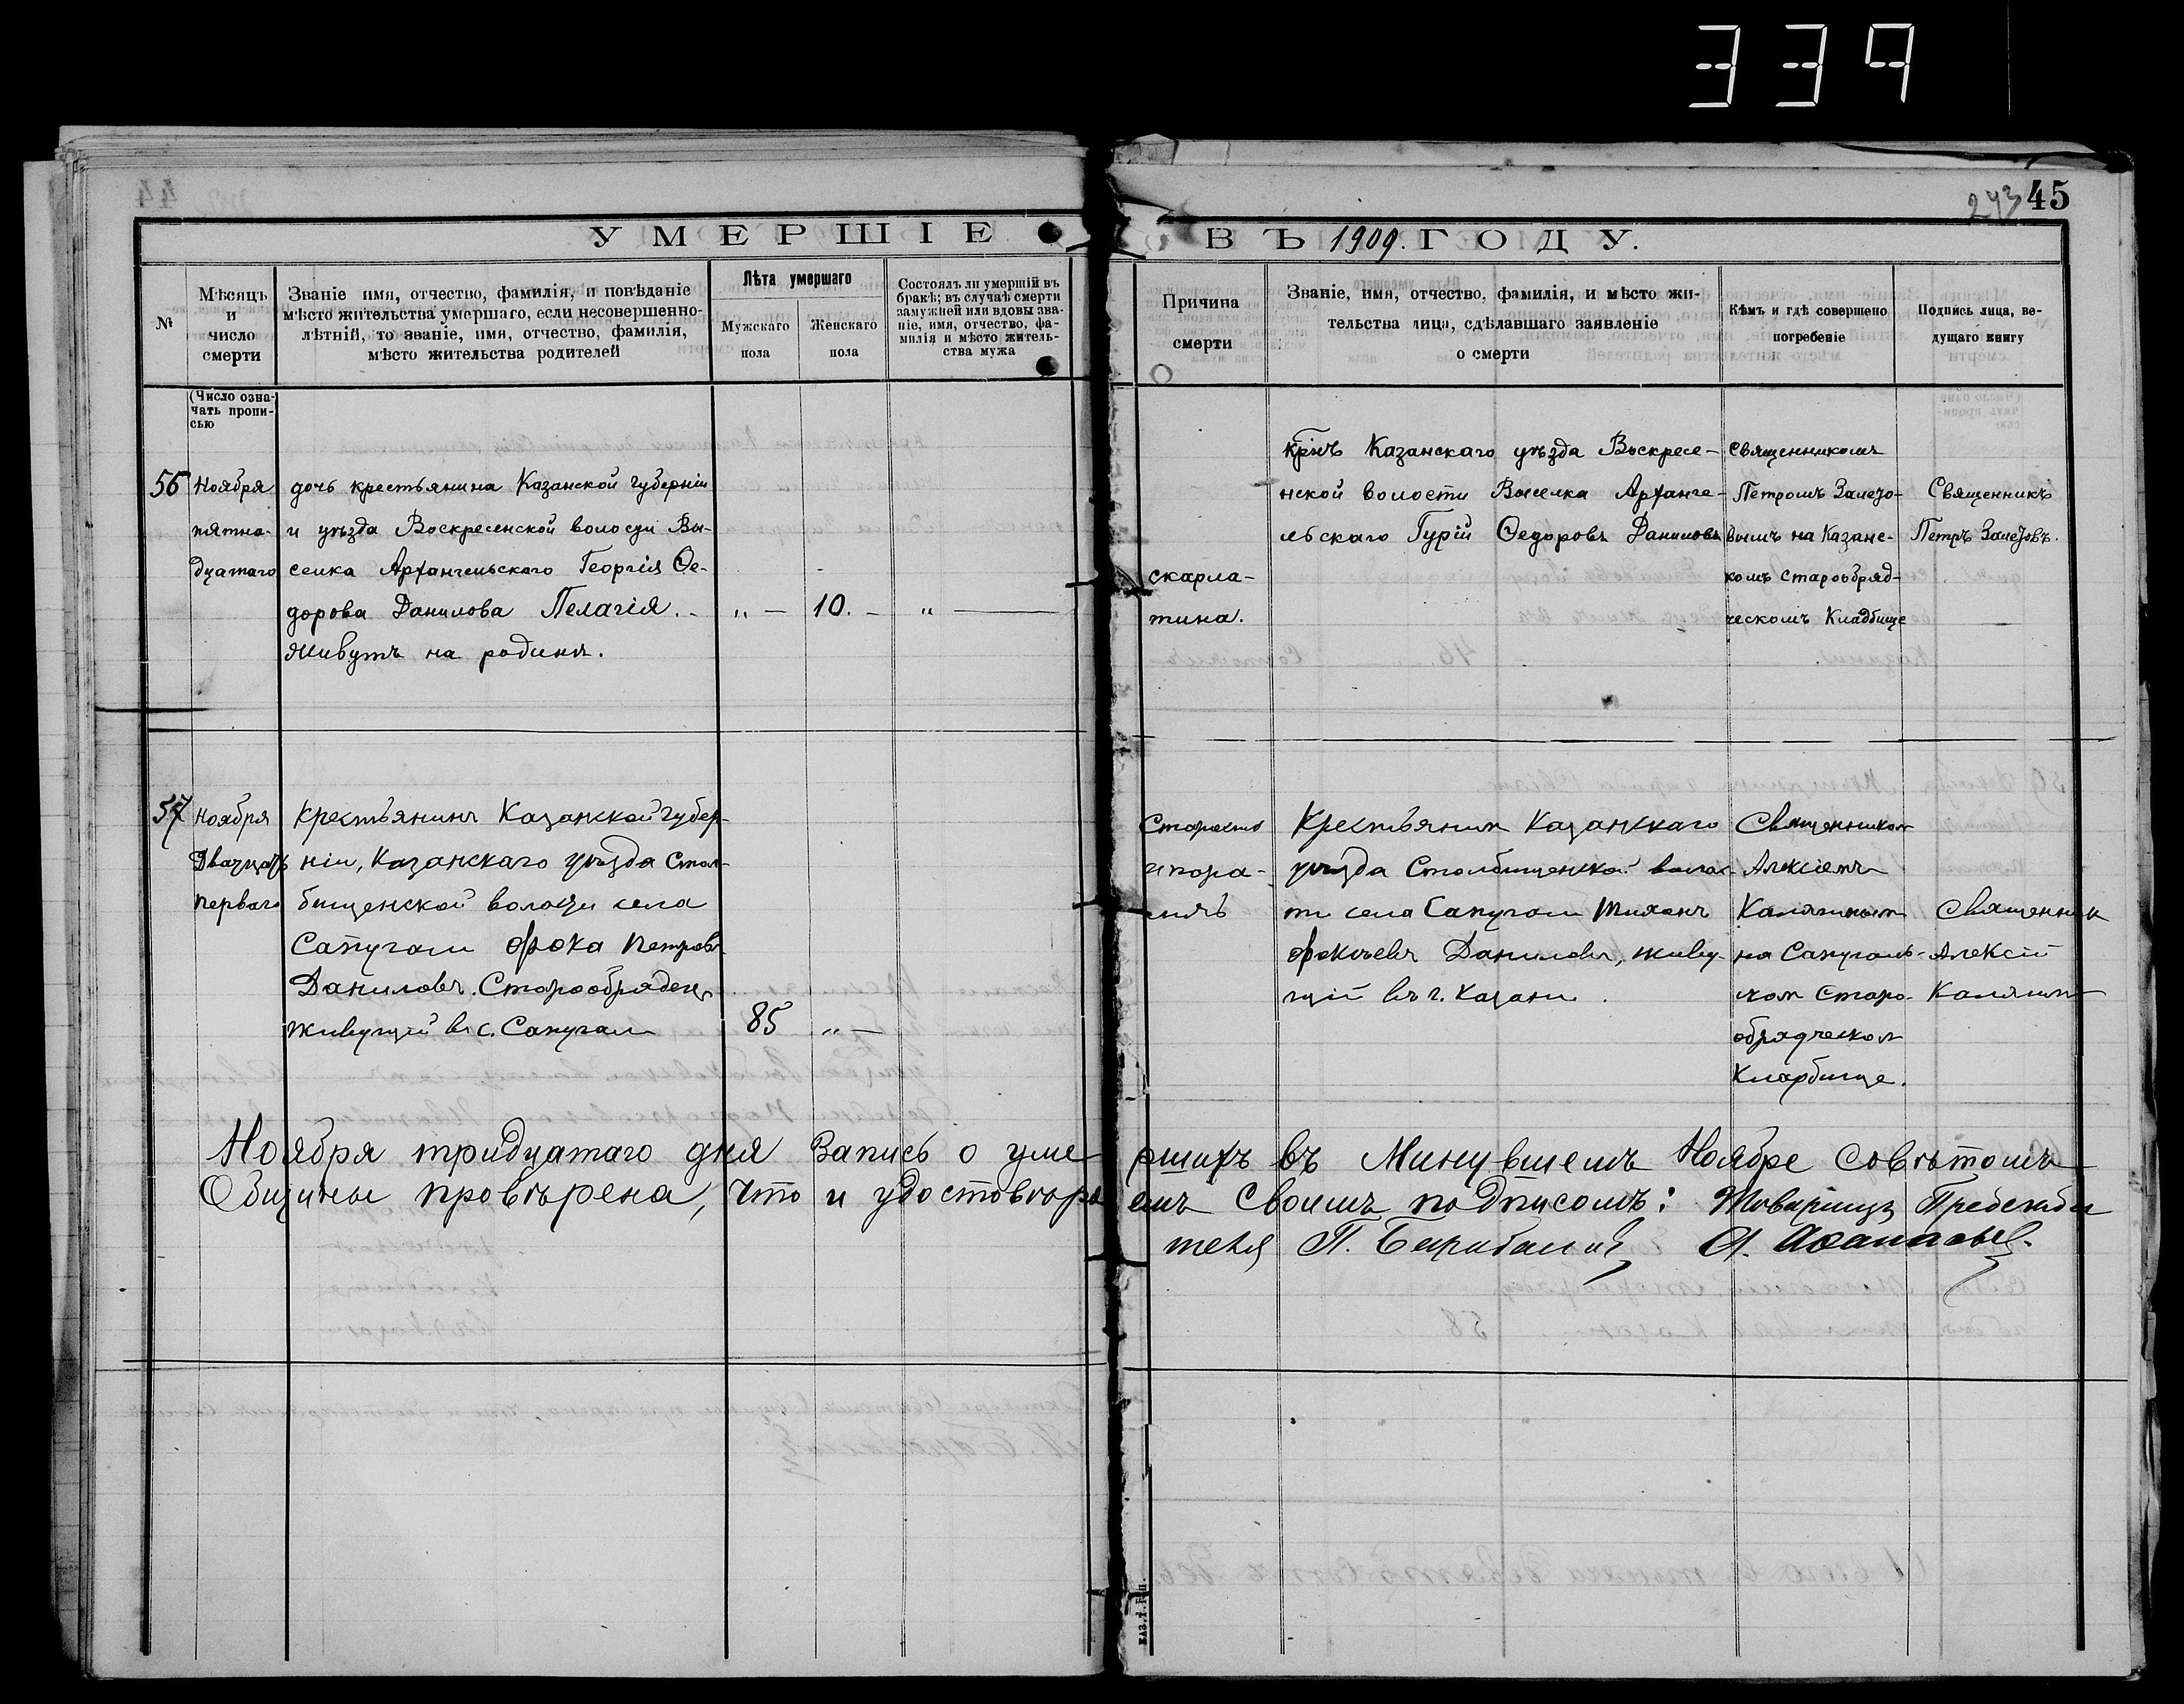 339
243 45
УМЕРШІЕ ВЪ 1909. ГОДУ.
№
Мѣсяцъ и число смерти
Званіе имя, отчество, фамилія, и повѣданіе
мѣсто жительства умершаго, если несовершенно-
лѣтній, то званіе, имя, отчество, фамилія,
мѣсто жительства родителей
Лѣта умершаго
Мужскаго пола
Женскаго пола
Состоялъ ли умершій въ
бракѣ; въ случаѣ смерти
замужней или вдовы зва-
ніе, имя, отчество, фа-
милія и мѣсто житель-
ства мужа
Причина смерти
Званіе, имя, отчество, фамилія, и мѣсто жи-
тельства лица, сдѣлавшаго заявленіе
о смерти
Кѣмъ и гдѣ совершено
погребеніе
Подпись лица, ве-
дущаго книгу
(Число озна-
чать пропи-
сью
56
Ноября
пятна-
дцатаго
дочь крестьянина Казанской губерніи
и уѣзда Воскресенской волости Вы-
селка Архангельскаго Георгія Ѳе-
дорова Данилова Пелагія. -
Живутъ на родинѣ.
„ —
10. —
„ —
скарла-
тина.
крнъ Казанскаго уѣзда Воскресе-
нской волости Выселка Арханге-
льскаго Гурій Ѳедоровъ Даниловъ
Священникомъ
Петромъ Залезо-
вымъ на Казанс-
комъ старообряд-
ческомъ Кладбище
Священникъ
Петръ Залезовъ.
57
Ноября
Двадцать
перваго
Крестьянинъ Казанской губер-
ніи, Казанскаго уѣзда Стол-
бищенской волости села
Сапуголи Фока Петровъ
Даниловъ. Старообрядец,
живущій въ с. Сапуголи
85
„ —
Старость
Крестьянинъ Казанскаго
уѣзда Столбищенской волос-
ти села Сапуголи Тихонъ
Фокичевъ Даниловъ, живу-
щій въ г. Казани.
Священником
Алексіемъ
Калягиным
на Сапуголь-
ском Старо-
обрядческом
Кладбище.
Священник
Алексій
Калягинъ
Ноября тридцатаго дня Запись о умершихъ въ Минувшемъ Ноябре Совѣтомъ
Общины провѣрена, что и удостовѣряемъ Своимъ подписомъ: Товарищъ Председа
теля П.
КАЗ.